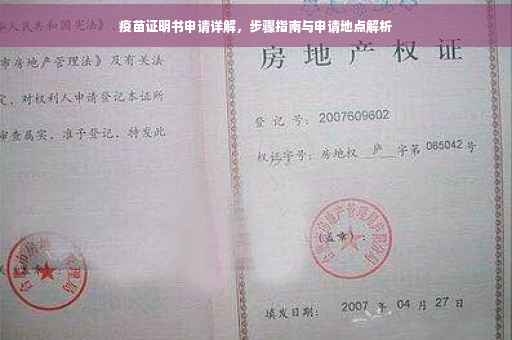 疫苗证明书申请详解，步骤指南与申请地点解析
华人民共和国宪法》、
市房地产管理法》及有关
定，对权利人申请登记本证所
审查属实，准予登记，特发此
房地产权证
登记号：2007609602
权证字号：房地权 庐 字第 085042 号
（盖章）：
填发日期： 2007 年 04 月 27 日